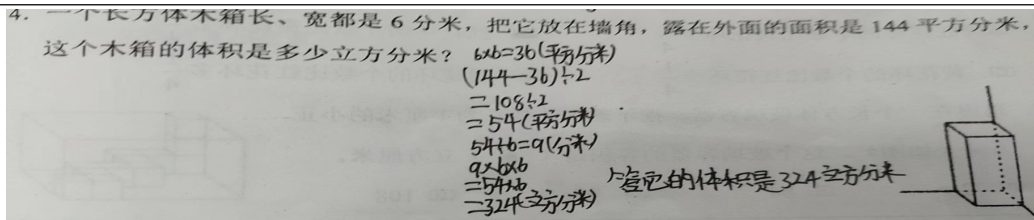 4. 一个长方体木箱长、宽都是6分米，把它放在墙角，露在外面的面积是144平方分米，
这个木箱的体积是多少立方分米？ 6×6=36(平方分米)
(144-36)÷2
=108÷2
=54(平方分米)
54÷6=9(分米)
9×6×6
=54×6
=324(立方分米)
答它的体积是324立方分米